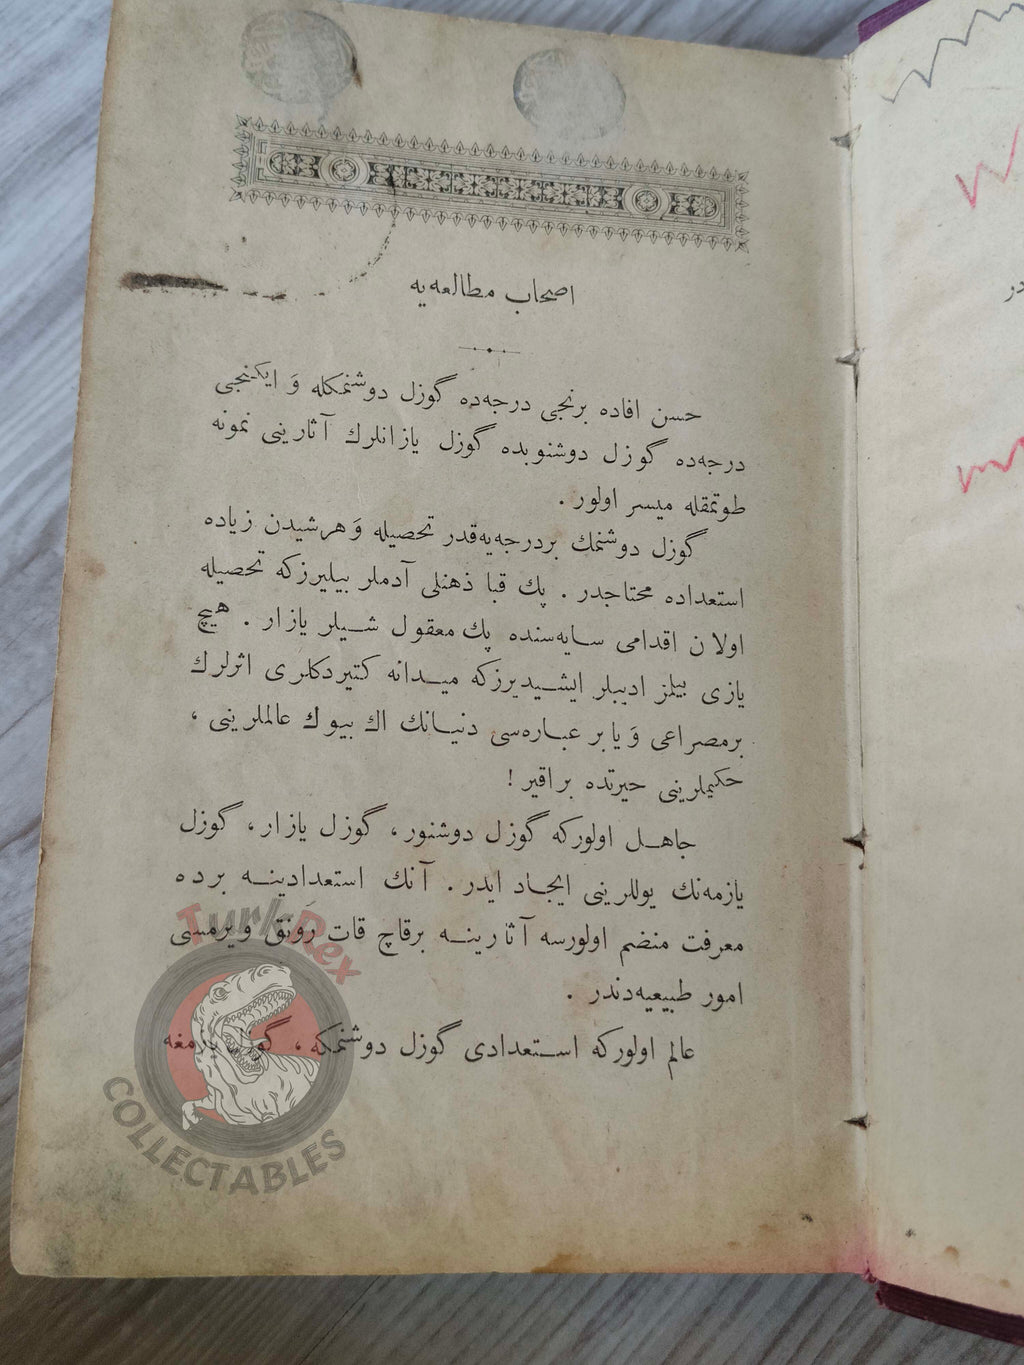 اصحاب مطالعه‌یه
حسن افاده برنجی درجه‌ده گوزل دوشنمكله وَ ایكنجی
درجه‌ده گوزل دوشنوبده گوزل یازانلرك آثارینی نمونه
طوتمقله میسر اولور .
گوزل دوشنمك بردرجه‌یه‌قدر تحصیله وَهرشیدن زیاده
استعداده محتاجدر . پك قبا ذهنلی آدملر بیلیرزكه تحصیله
اولان اقدامی سایه‌سنده پك معقول شیلر یازار . هیچ
یازی بیلمز ادیبلر ایشیدیرزكه میدانه كتیردكلری اثرلرك
برمصراعی وَیا بر عباره‌سی دنیانك اك بیوك عالملرینی ،
حكیملرینی حیرتده براقیر !
جاهل اولوركه گوزل دوشنور ، گوزل یازار ، گوزل
یازمه‌نك یوللرینی ایجاد ایدر . آنك استعدادینه برده
معرفت منضم اولورسه آثارینه برقاچ قات رَونق ویرمسی
امور طبیعیه‌دندر .
عالم اولوركه استعدادی گوزل دوشنمكه ، گوزل یازمغه
TurkRex
COLLECTABLES